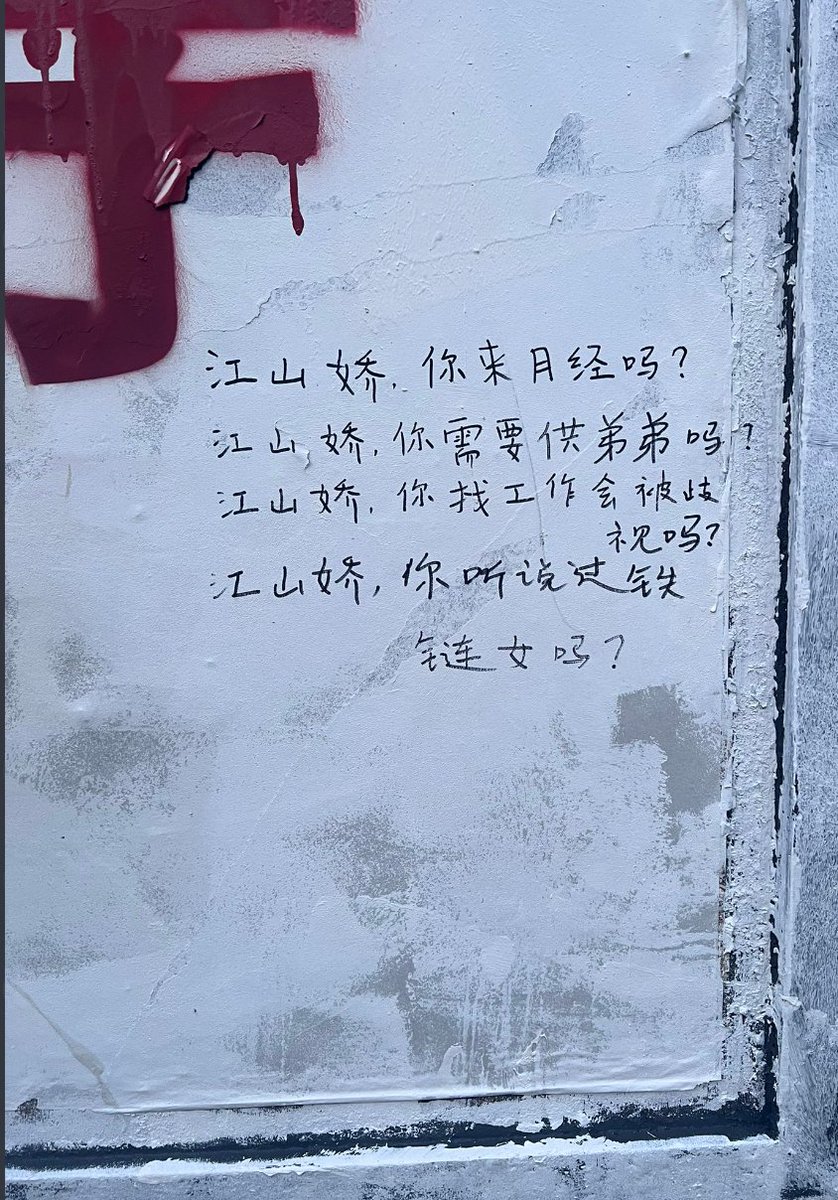 江山娇,你来月经吗?
江山娇,你需要供弟弟吗?
江山娇,你找工作会被歧
视吗?
江山娇,你听说过铁
链女吗?